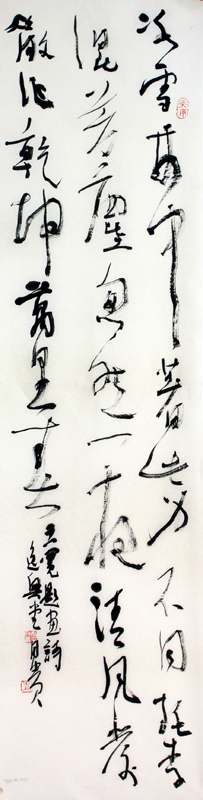 冰雪林中著此身不同桃李
混芳塵忽然一夜清風發
散作乾坤萬里春
王冕題畫詩
逸興堂